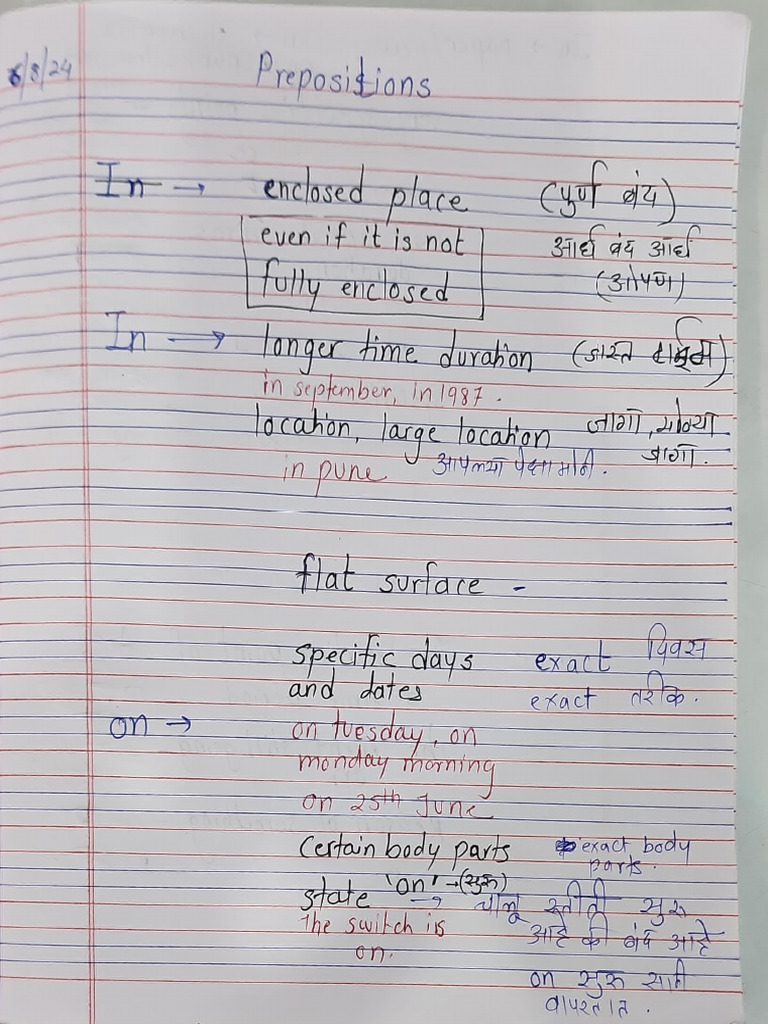 6/8/24
Prepositions
In → enclosed place (पुर्ण बंद)
even if it is not आर्ध बंद आर्ध
fully enclosed (ओपण)
In → longer time duration (जास्त)
in september, in 1987.
location, large location जागा, मोठ्या
जागा.
in pune आपल्या पेक्षा मोठी.
flat surface -
specific days exact दिवस
and dates exact तरीक.
on → on tuesday, on
monday morning
on 25th June
Certain body parts exact body
parts.
state 'on' → (सुरू) → चालू स्तीती सुरू
The switch is आहे की बंद आहे
on.
on सुरू साठी
वापरतात.